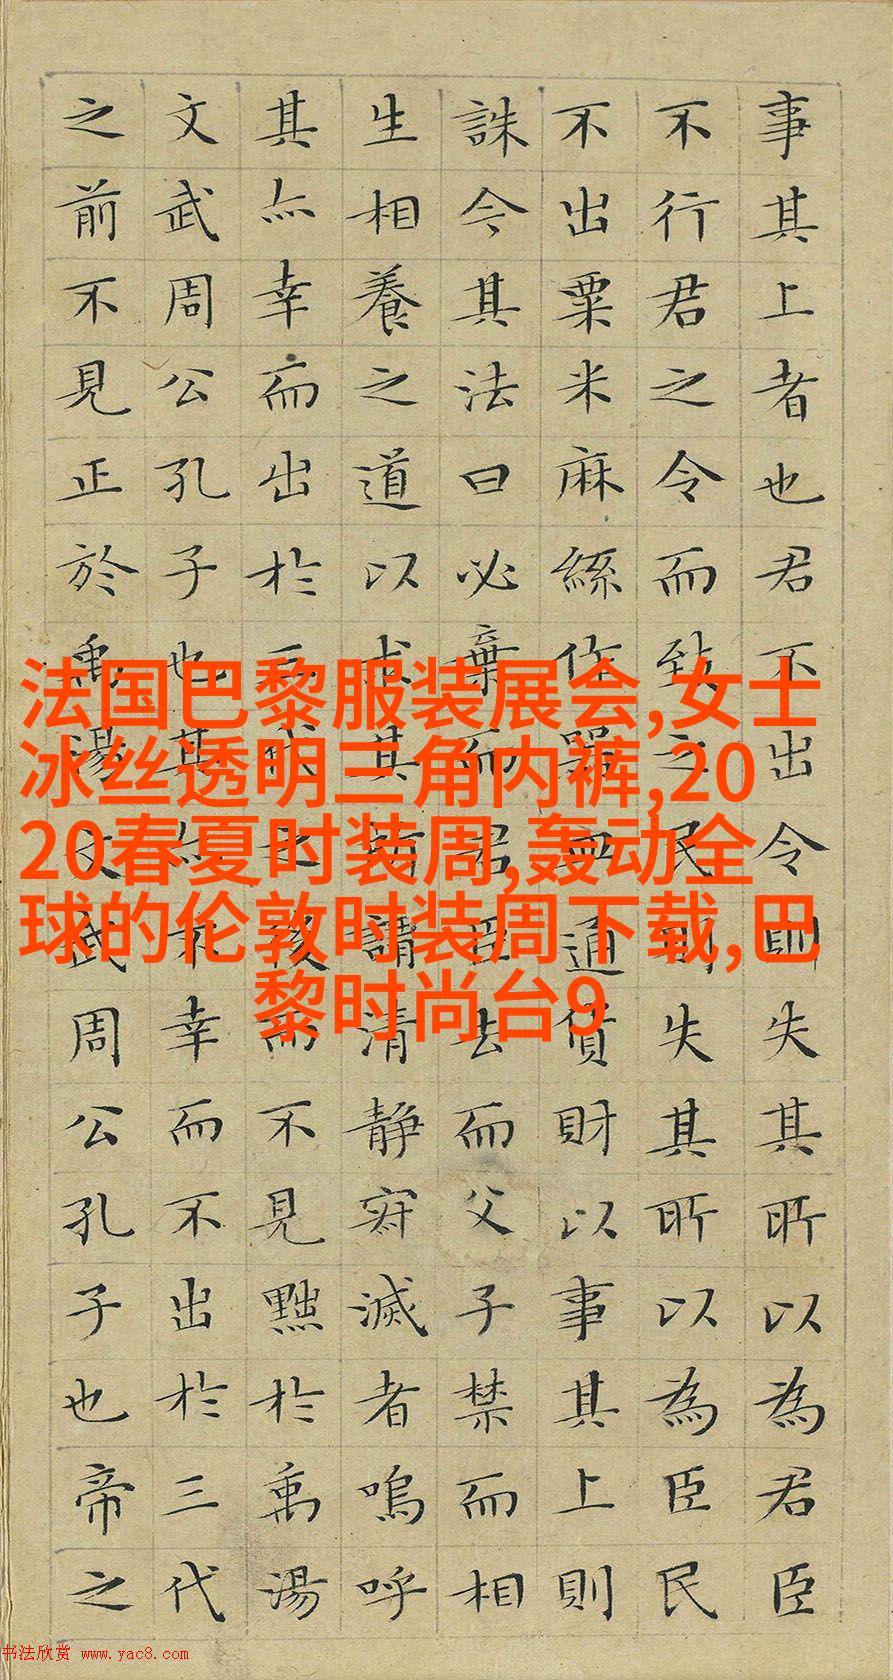 事其上者也君不出令則失其所以為君臣
不行君之令而致之民則失其所以為臣民
不出粟米麻絲作器皿通貨財以事其上則
誅今其法曰必棄而君臣去而父子禁而相
生相養之道以求其所謂清静寂滅者嗚呼
其亦幸而出於三代之後而不見黜於禹湯
文武周公孔子也其亦不幸而不出於三代
之前不見正於禹湯文武周公孔子也帝之
法国巴黎服装展会,女士
冰丝透明三角内裤,20
20春夏时装周,轰动全
球的伦敦时装周下载,巴
黎时尚台9
书法欣赏 www.yac8.com